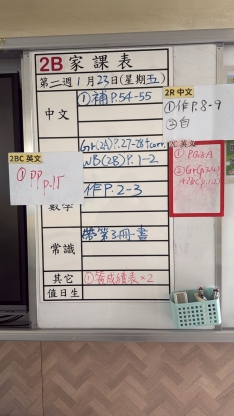 2B 家課表
第二週1月23日(星期五)
中文
①補P.54-55
2R 中文
①作P.8-9
②自
Gr(2A)P.27-28+corr.
WB(2B)P.1-2
2BC 英文
①PP
P.15
英文
①PG3A
數學
作P.2-3
常識
帶第3冊書
其它
①簽成績表×2
值日生